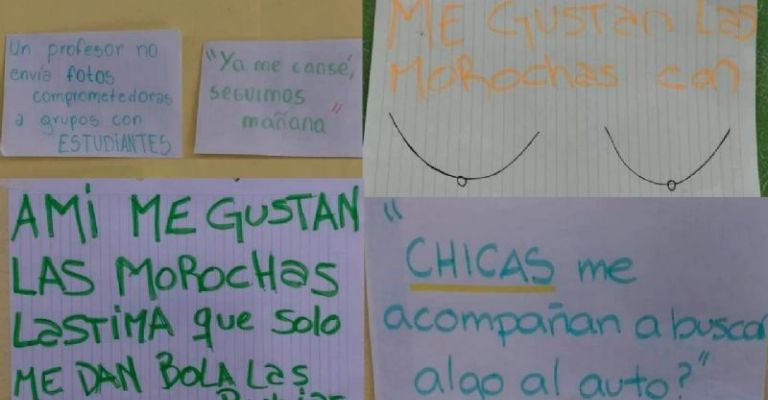 Un profesor no
envía fotos
comprometedoras
a grupos con
ESTUDIANTES
"Ya me cansé,
seguimos
mañana"
ME GUSTAN LAS
MOROCHAS CON
AMI ME GUSTAN
LAS MOROCHAS
LASTIMA que solo
ME DAN BOLA LAS
"
CHICAS me
acompañan a buscar
algo al auto?"